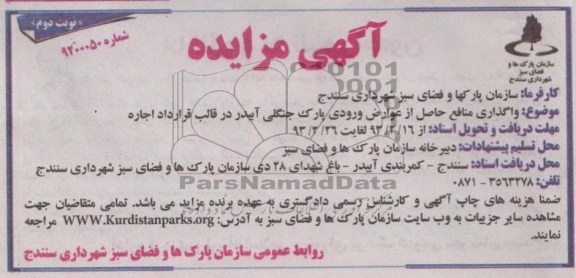 «نوبت دوم»
شماره ۹۳۰۰۰۵۰
آگهی مزایده
سازمان پارک ها و
فضای سبز
شهرداری سنندج
کارفرما: سازمان پارکها و فضای سبز شهرداری سنندج
موضوع: واگذاری منافع حاصل از عوارض ورودی پارک جنگلی آبیدر در قالب قرارداد اجاره
مهلت دریافت و تحویل اسناد: از ۹۳/۲/۱۶ لغایت ۹۳/۲/۲۶
محل تسلیم پیشنهادات: دبیرخانه سازمان پارک ها و فضای سبز
محل دریافت اسناد: سنندج - کمربندی آبیدر - باغ شهدای ۲۸ دی سازمان پارک ها و فضای سبز شهرداری سنندج
تلفن: ۳۵۶۳۲۷۸ - ۰۸۷۱
ParsNamadData
ضمنا هزینه های چاپ آگهی و کارشناس رسمی دادگستری به عهده برنده مزایده می باشد. تمامی متقاضیان جهت
مشاهده سایر جزییات به وب سایت سازمان پارک ها و فضای سبز به آدرس: WWW.Kurdistanparks.org مراجعه
نمایند.
روابط عمومی سازمان پارک ها و فضای سبز شهرداری سنندج